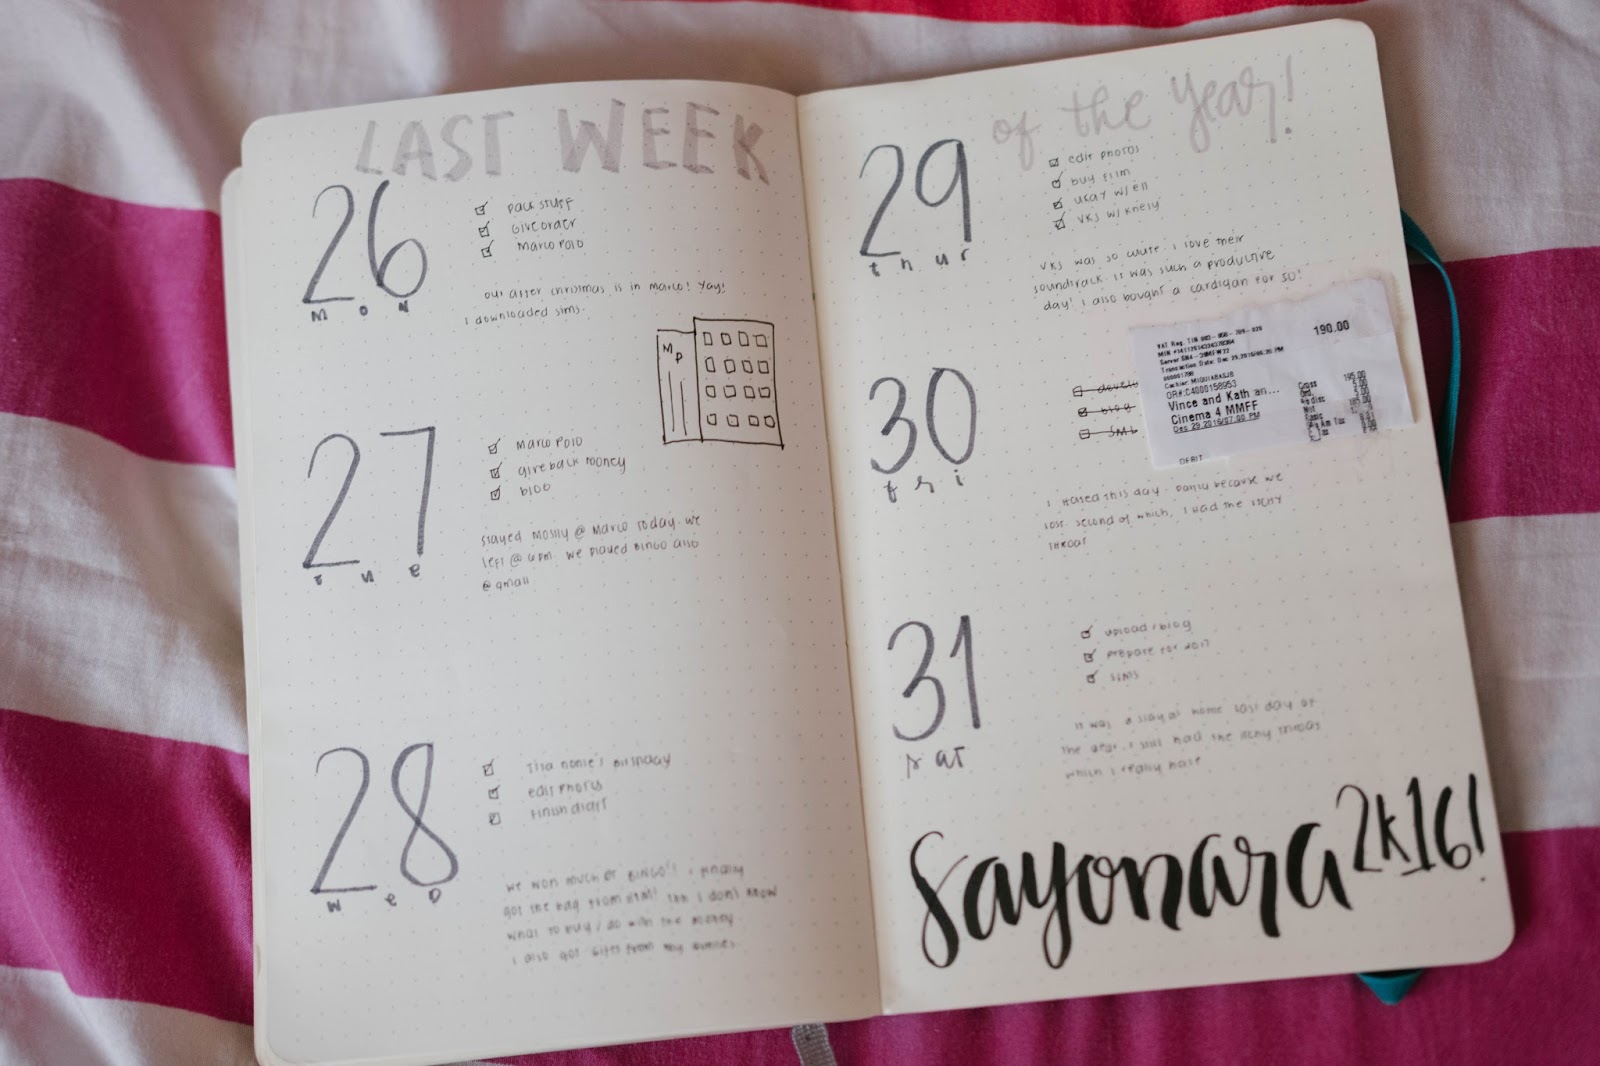 LAST WEEK
26
MON
pack stuff
give order
Marco Polo
our after christmas is in Marco! Yay!
I downloaded sims.
MP
27
tue
Marco Polo
give back money
blog
stayed mostly @ Marco today. we
left @ 6pm. we played Bingo also
@ qmall
28
wed
Tita Nonie's Birthday
edit photos
finish digit
we won much at BINGO!! I finally
got the bag from H&M! tho I don't know
what to buy/do with the money
I also got gifts from my
of the Year!
29
thur
edit photos
buy film
ukay w/ ell
VKJ w/ knely
VKJ was so cute. I love their
soundtrack. it was such a productive
day! I also bought a cardigan for 50!
30
fri
develo
blog
SML
VAT Reg. TIN
Transaction Date: Dec 29,2016/06:20 PM
190.00
OR#:C4000158953
Vince and Kath an...
Cinema 4 MMFF
Dec 29,2016/07:00 PM
Gross 195.00
DEBIT
I hated this day. because we
lost. second of which, I had the itchy
throat
31
sat
upload blog
prepare for 2017
sims
It was a stay at home last day of
the year. I still had the itchy throat
which I really hate
Sayonara 2k16!